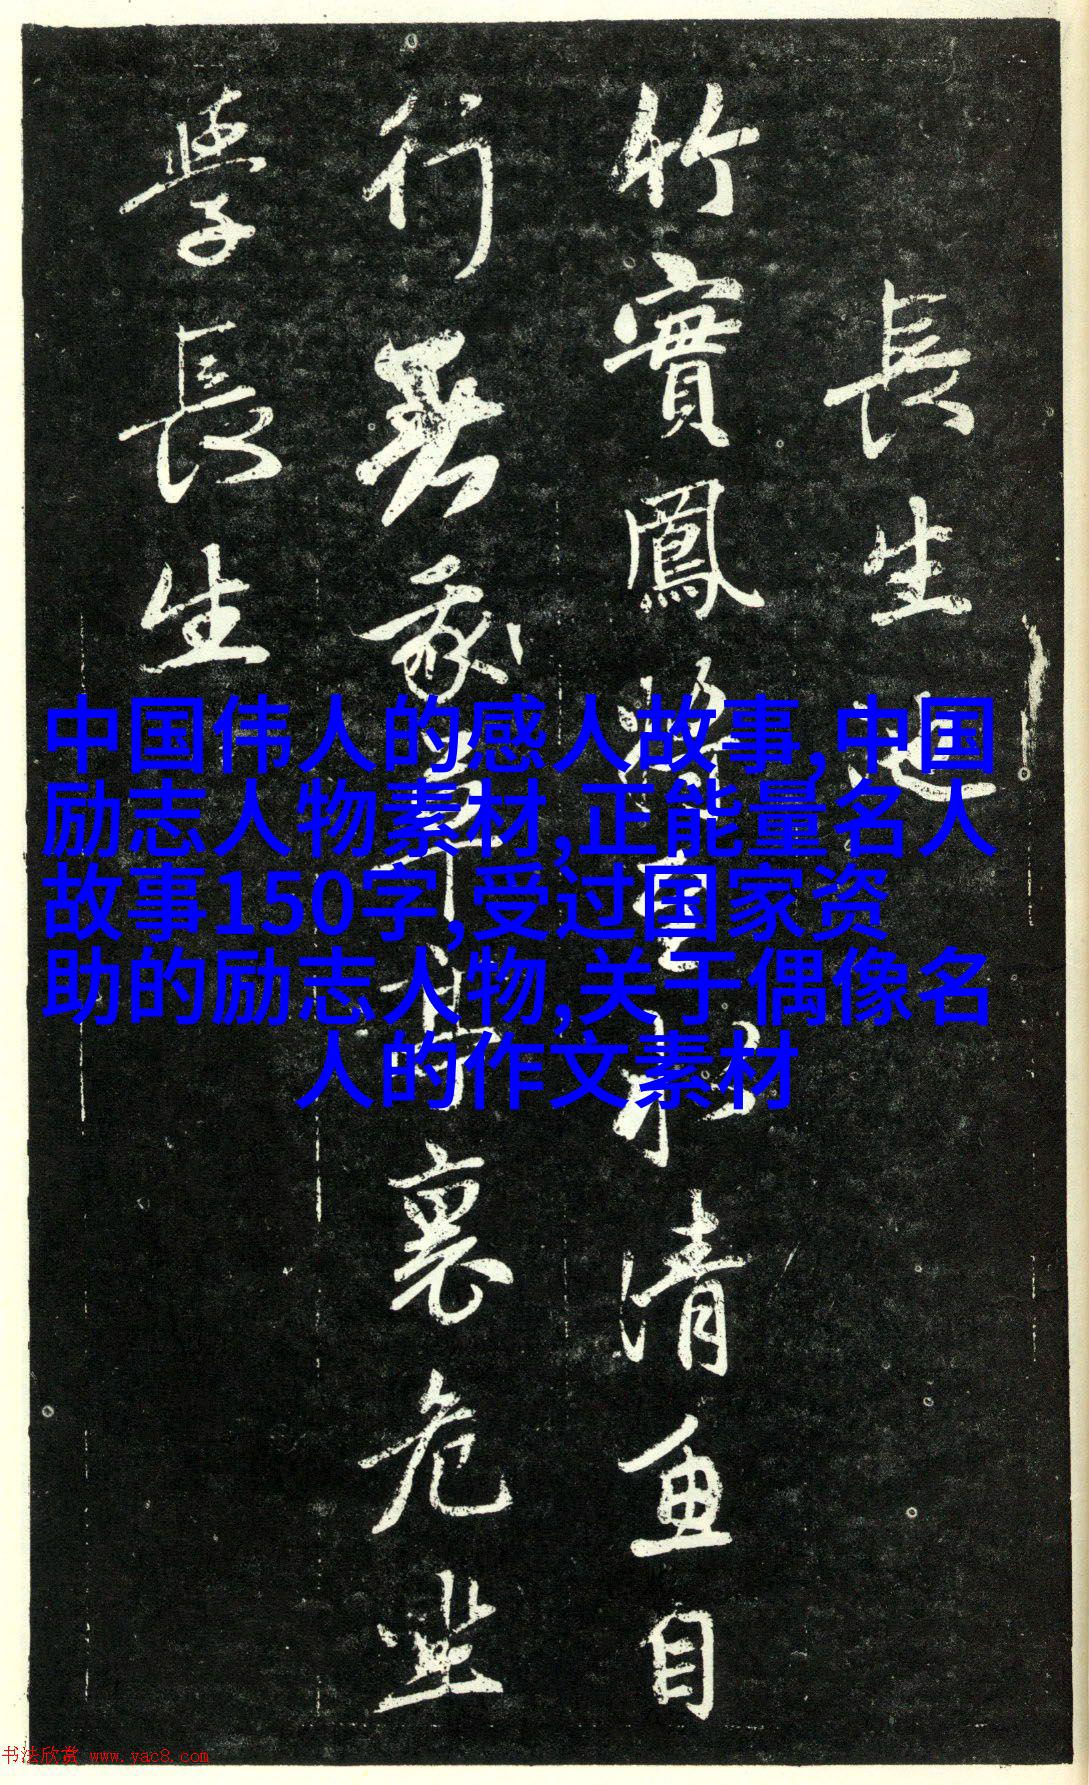 長生池
竹實鳳將至水清魚自
行 裏危坐
學長生
中国伟人的感人故事,中国
励志人物素材,正能量名人
故事150字,受过国家资
助的励志人物,关于偶像名
人的作文素材
书法欣赏 www.yac8.com